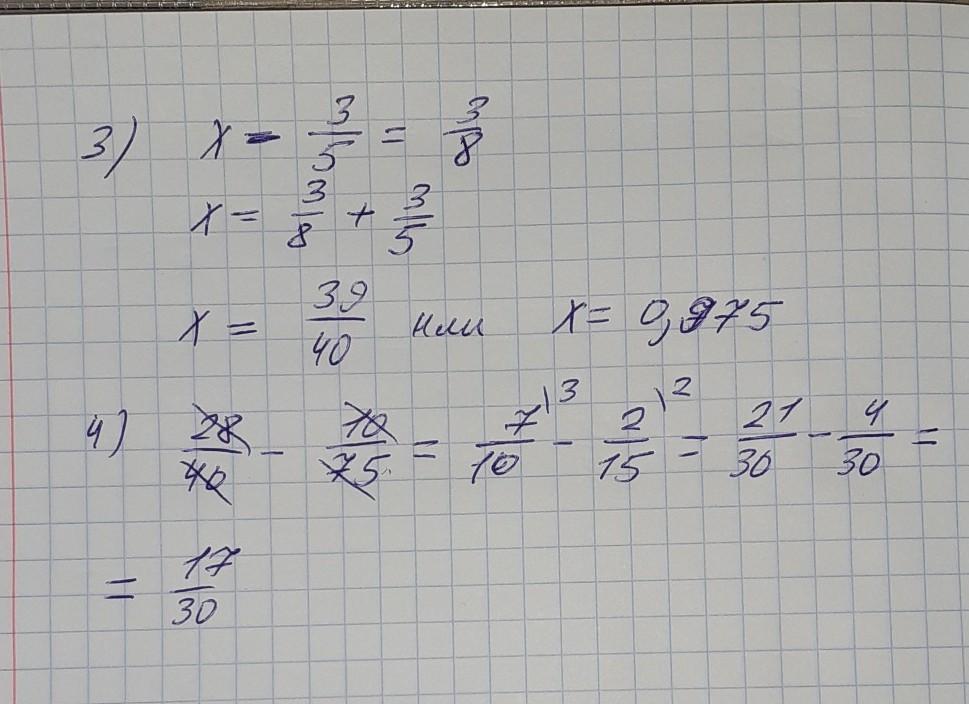 3) x - 3/5 = 3/8
x = 3/8 + 3/5
x = 39/40 или x = 0,975
4) 28/40 - 10/75 = 7/10 \3 - 2/15 \2 = 21/30 - 4/30 =
= 17/30